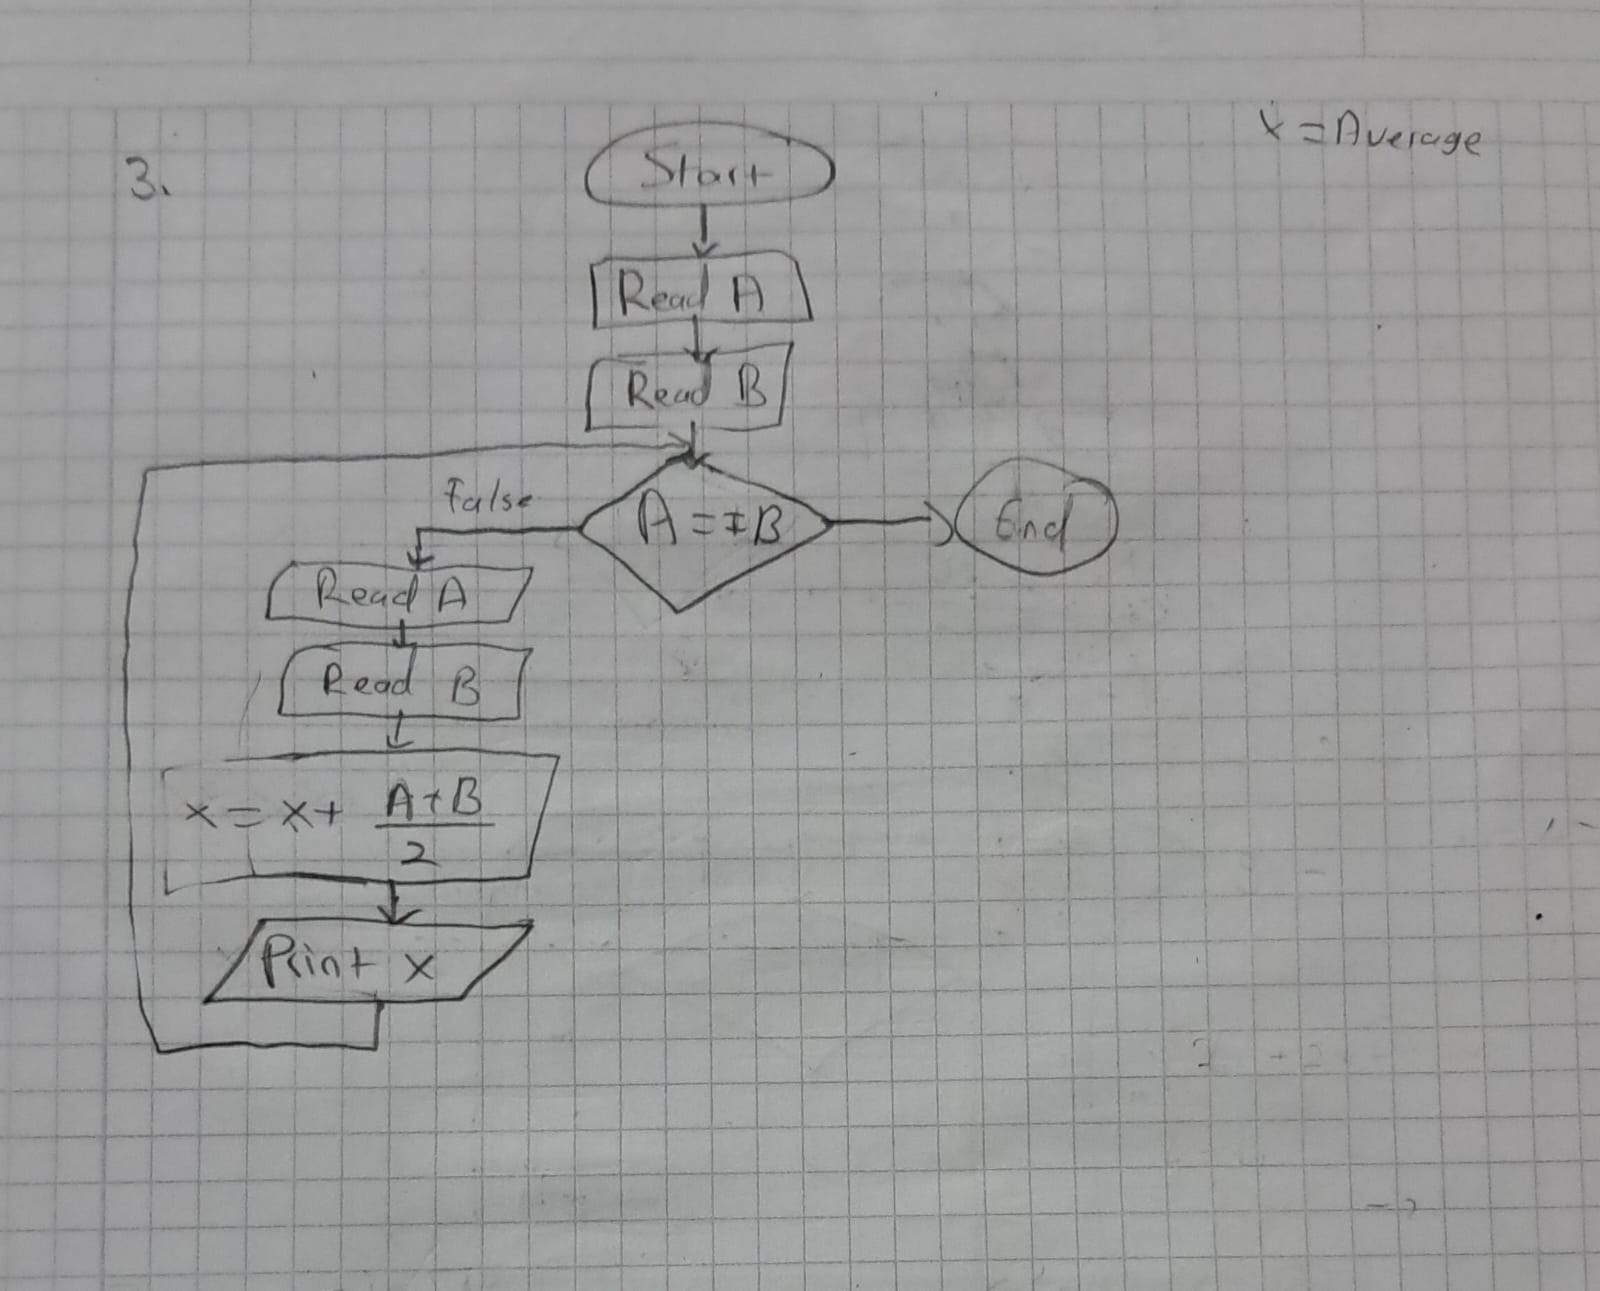 x = Average
3.
Start
Read A
Read B
A == B
False
End
Read A
Read B
x = x + A+B
2
Print x